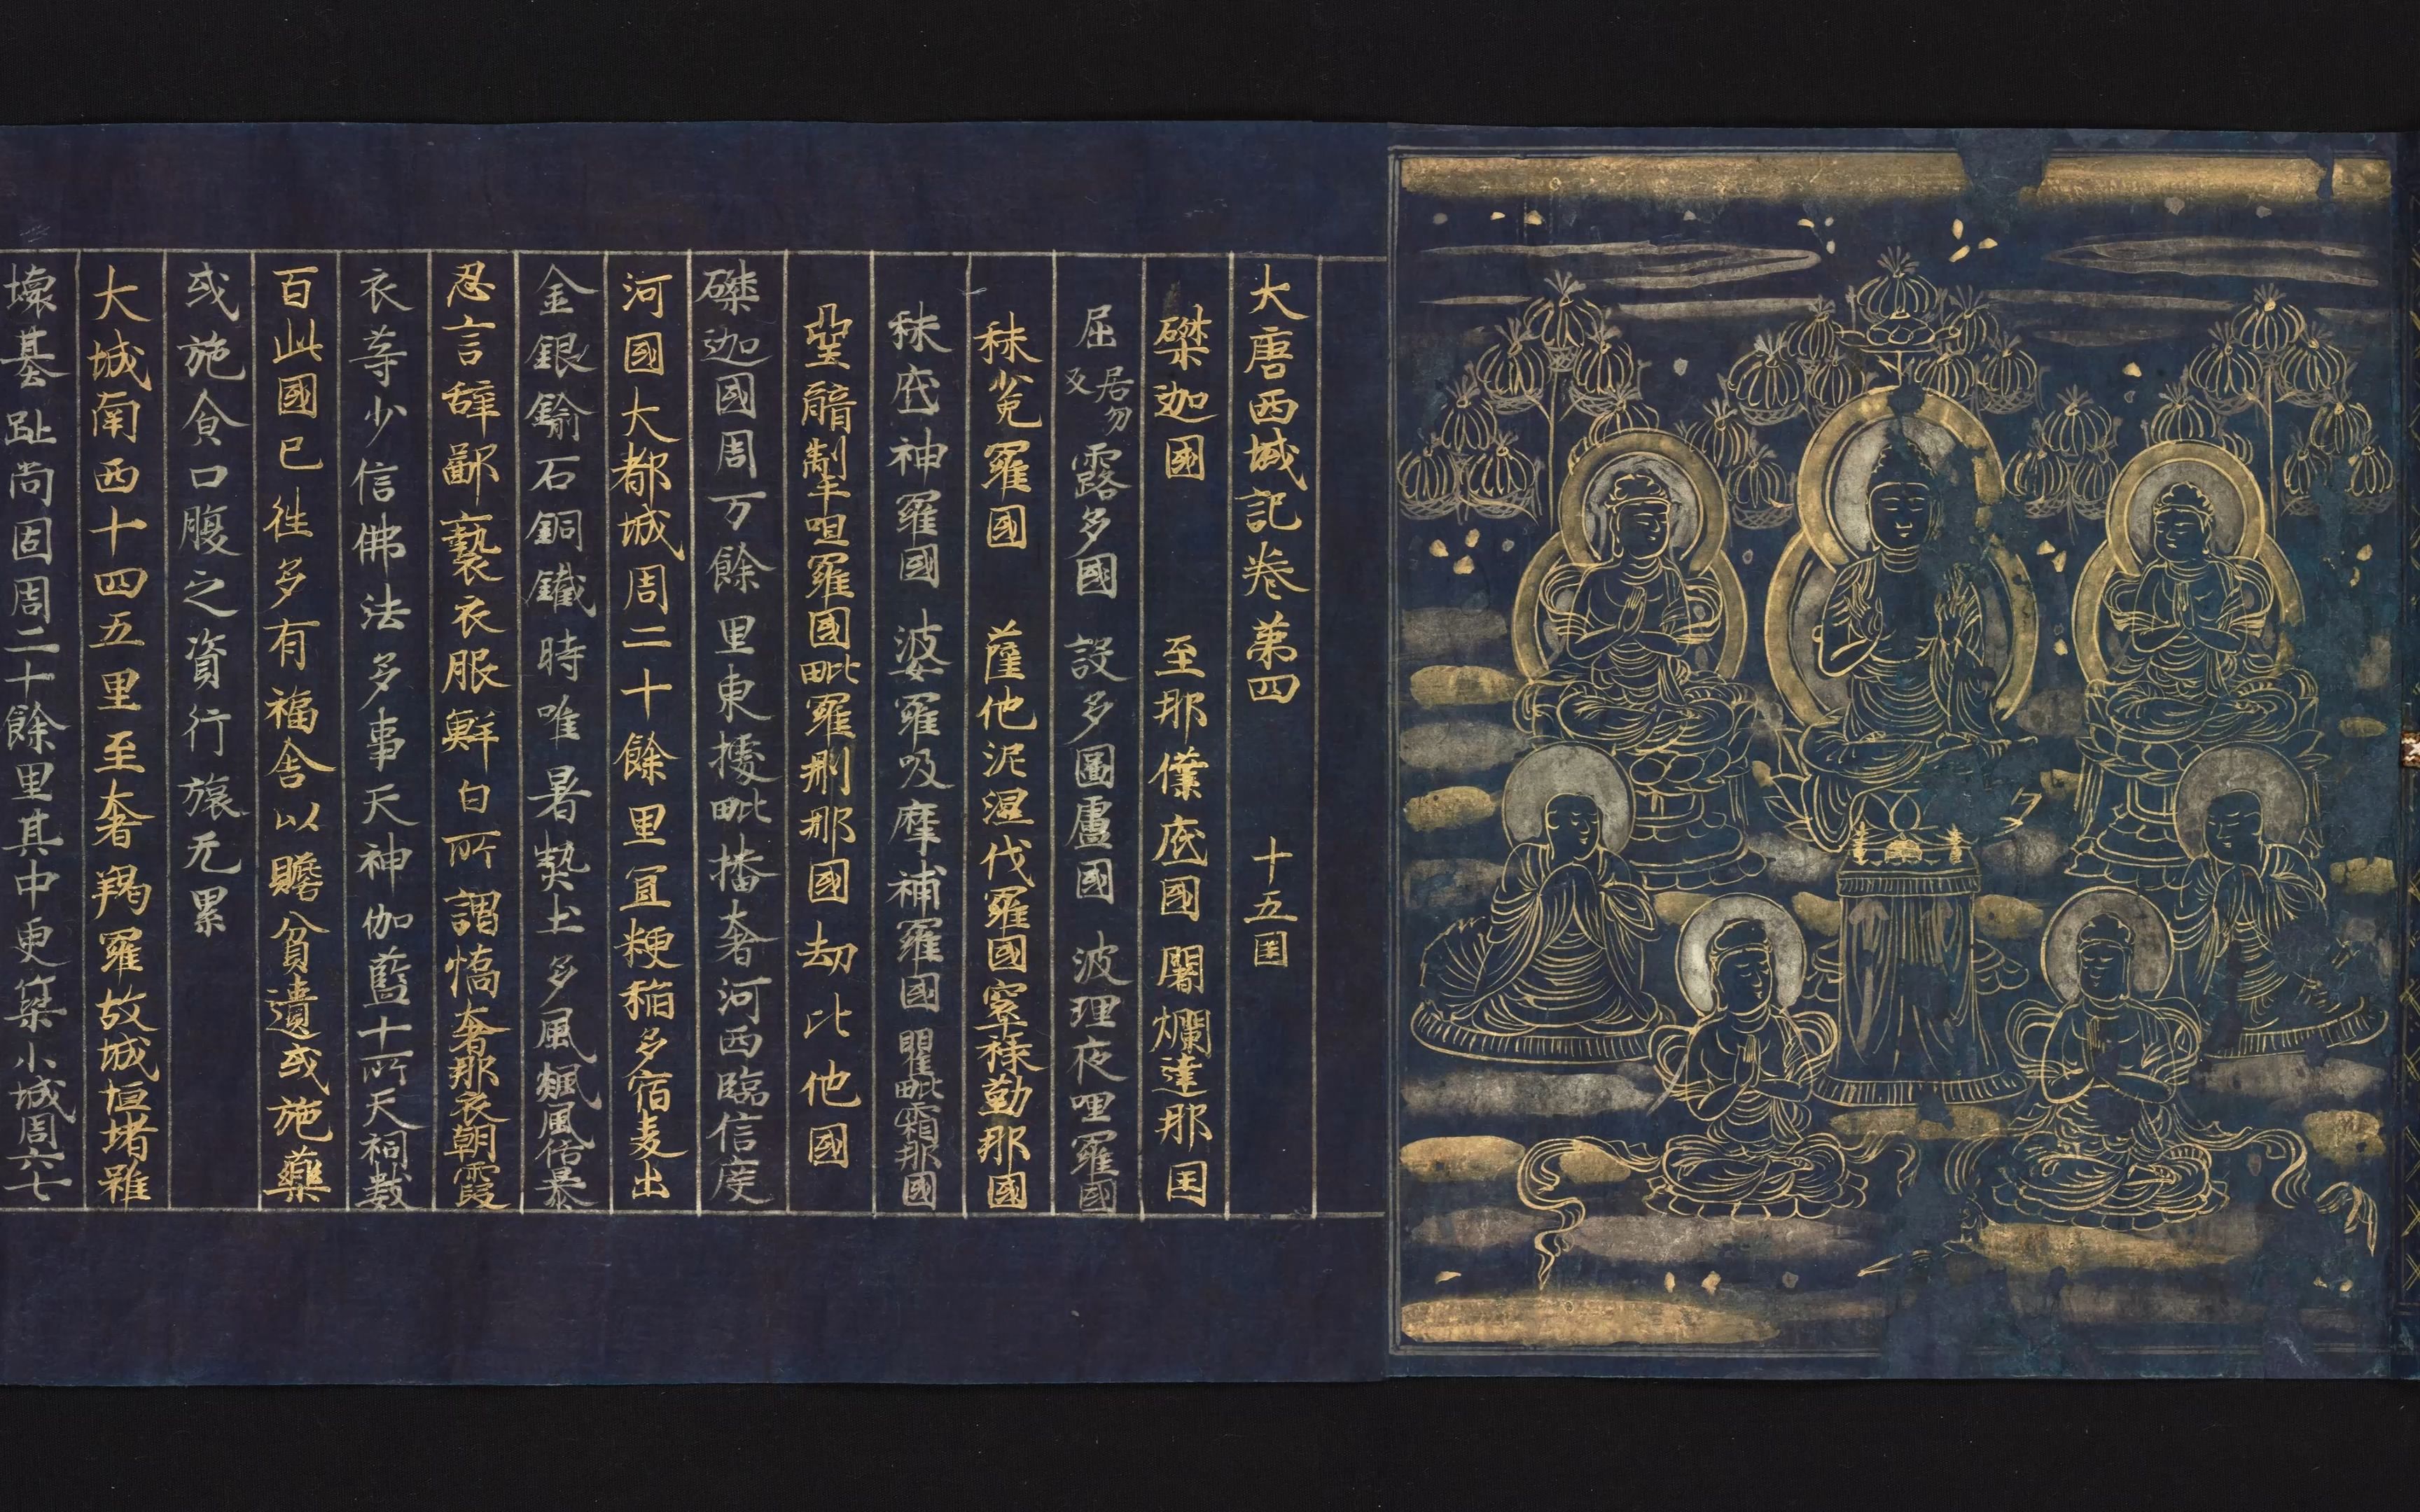 大唐西域記卷第四 十五国
磔迦國 至那僕底國 闍爛達那国
屈居勿反露多國 設多圖盧國 波理夜呾羅國
秣菟羅國 薩他泥濕伐羅國窣祿勤那國
秣底神羅國 婆羅吸摩補羅國 瞿毗霜那國
堊醯掣呾羅國毗羅刪那國 劫比他國
磔迦國周万餘里東據毗播奢河西臨信度
河國大都城周二十餘里冝粳稻多宿麦出
金銀鍮石銅鐵時唯暑熱土多風飈風俗暴
忍言辞鄙褻衣服鮮白所謂憍奢那衣朝霞
衣等少信佛法多事天神伽藍十所天祠數
百此國已往多有福舎以贍貧遺或施藥
或施食口腹之資行旅无累
大城南西十四五里至奢羯羅故城垣堵雖
壊基趾尚固周二十餘里其中更築小城周六七